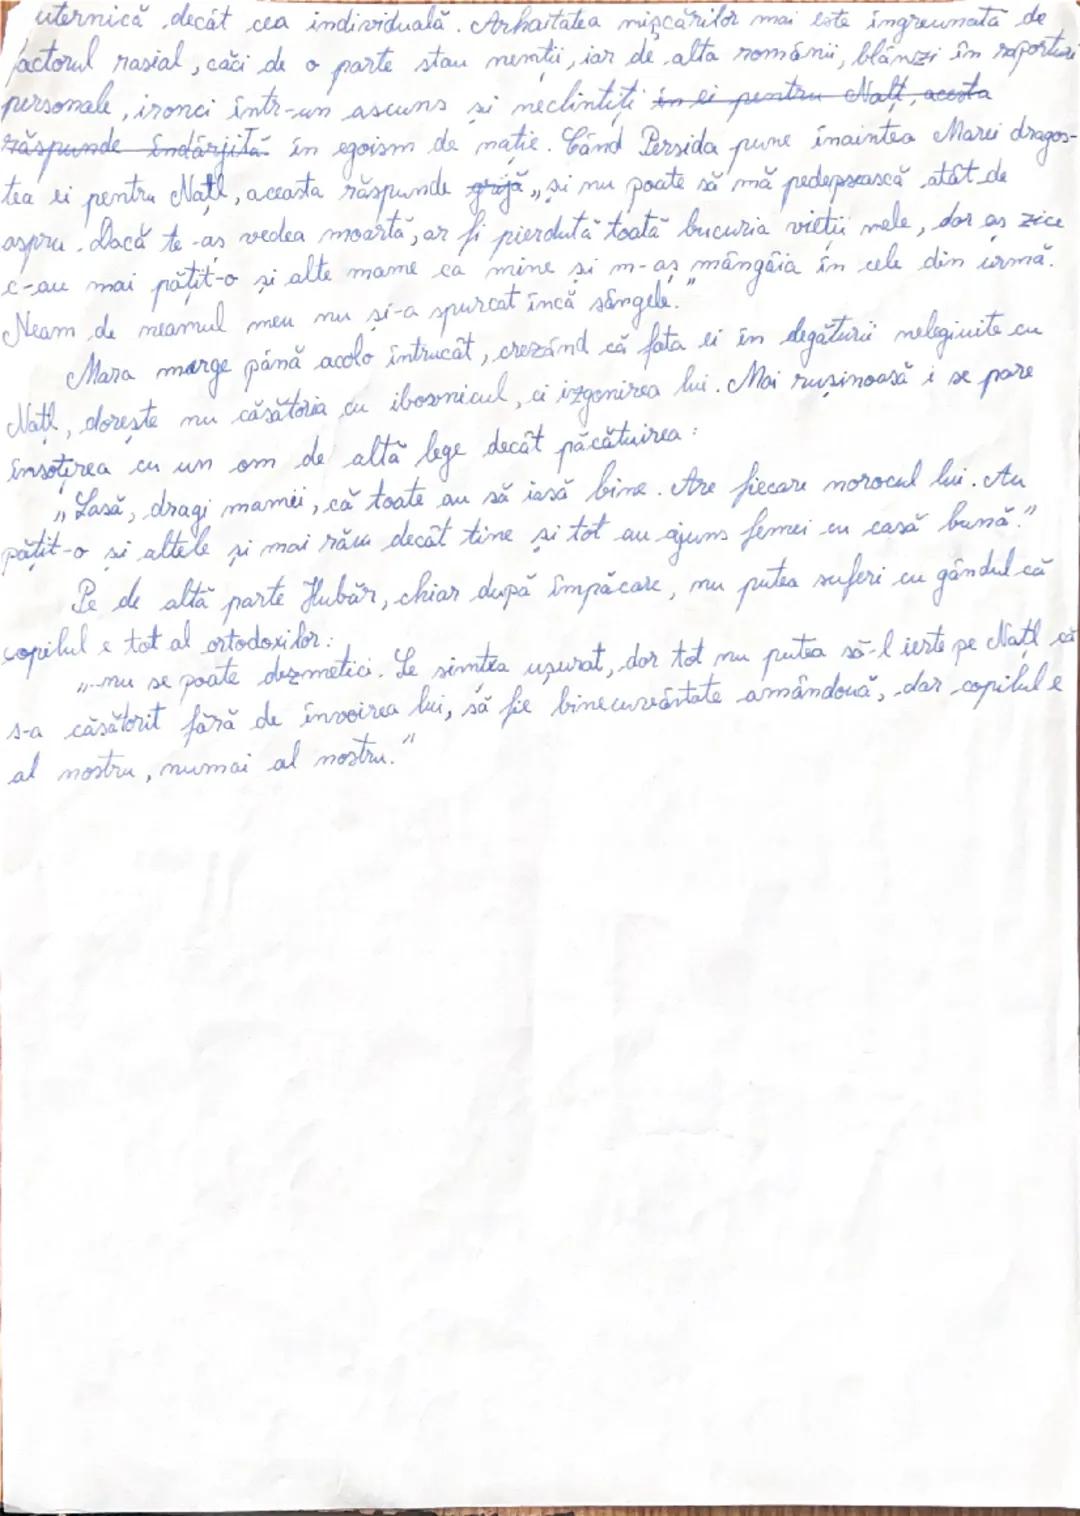 uternică decât cea individuală. Arhaitatea mișcărilor mai este îngreunată de
factorul rasial, căci de o parte stau nemții, iar de alta românii, blânzi în raporturi
personale, ironci într-un ascuns și neclintiți în ei pentru Natl, acesta
răspunde îndârjită în egoism de nație. Când Persida pune înaintea Marei dragos-
tea ei pentru Natl, aceasta răspunde grijă „și nu poate să mă pedepsească atât de
aspru. Dacă te-aș vedea moartă, ar fi pierdută toată bucuria vieții mele, dar aș zice
c-au mai pățit-o și alte mame ca mine și m-aș mângâia în cele din urmă.
Neam de neamul meu nu și-a spurcat încă sângele."
Mara merge până acolo întrucât, crezând că fata ei în legături nelegiuite cu
Natl, dorește nu căsătoria cu ibovnicul, ci izgonirea lui. Mai rușinoasă i se pare
însoțirea cu un om de altă lege decât păcătuirea:
„Lasă, dragi mamei, că toate au să iasă bine. Are fiecare norocul lui. Au
pățit-o și altele și mai rău decât tine și tot au ajuns femei cu casă bună."
Pe de altă parte Hubăr, chiar după împăcare, nu putea suferi cu gândul că
copilul e tot al ortodoxilor:
„-nu se poate dezmetici. Se simțea ușurat, dar tot nu putea să-l ierte pe Natl că
s-a căsătorit fără de învoirea lui, să fie binecuvântate amândouă, dar copilul e
al nostru, numai al nostru."